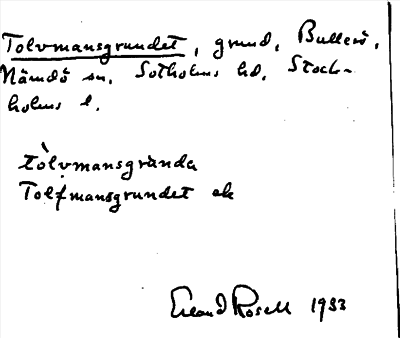 Tolvmansgrundet, grund, Bullerö,
Nämdö sn. Sotholms hd. Stock-
holms l.
tòlvmansgrànda
Tolfmansgrundet ek
Erland Rosell 1933